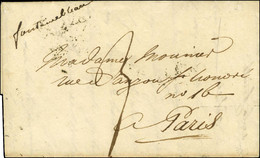 fontainebleau
Madame Mounier
rue d'anjou St honoré
no 16
Paris